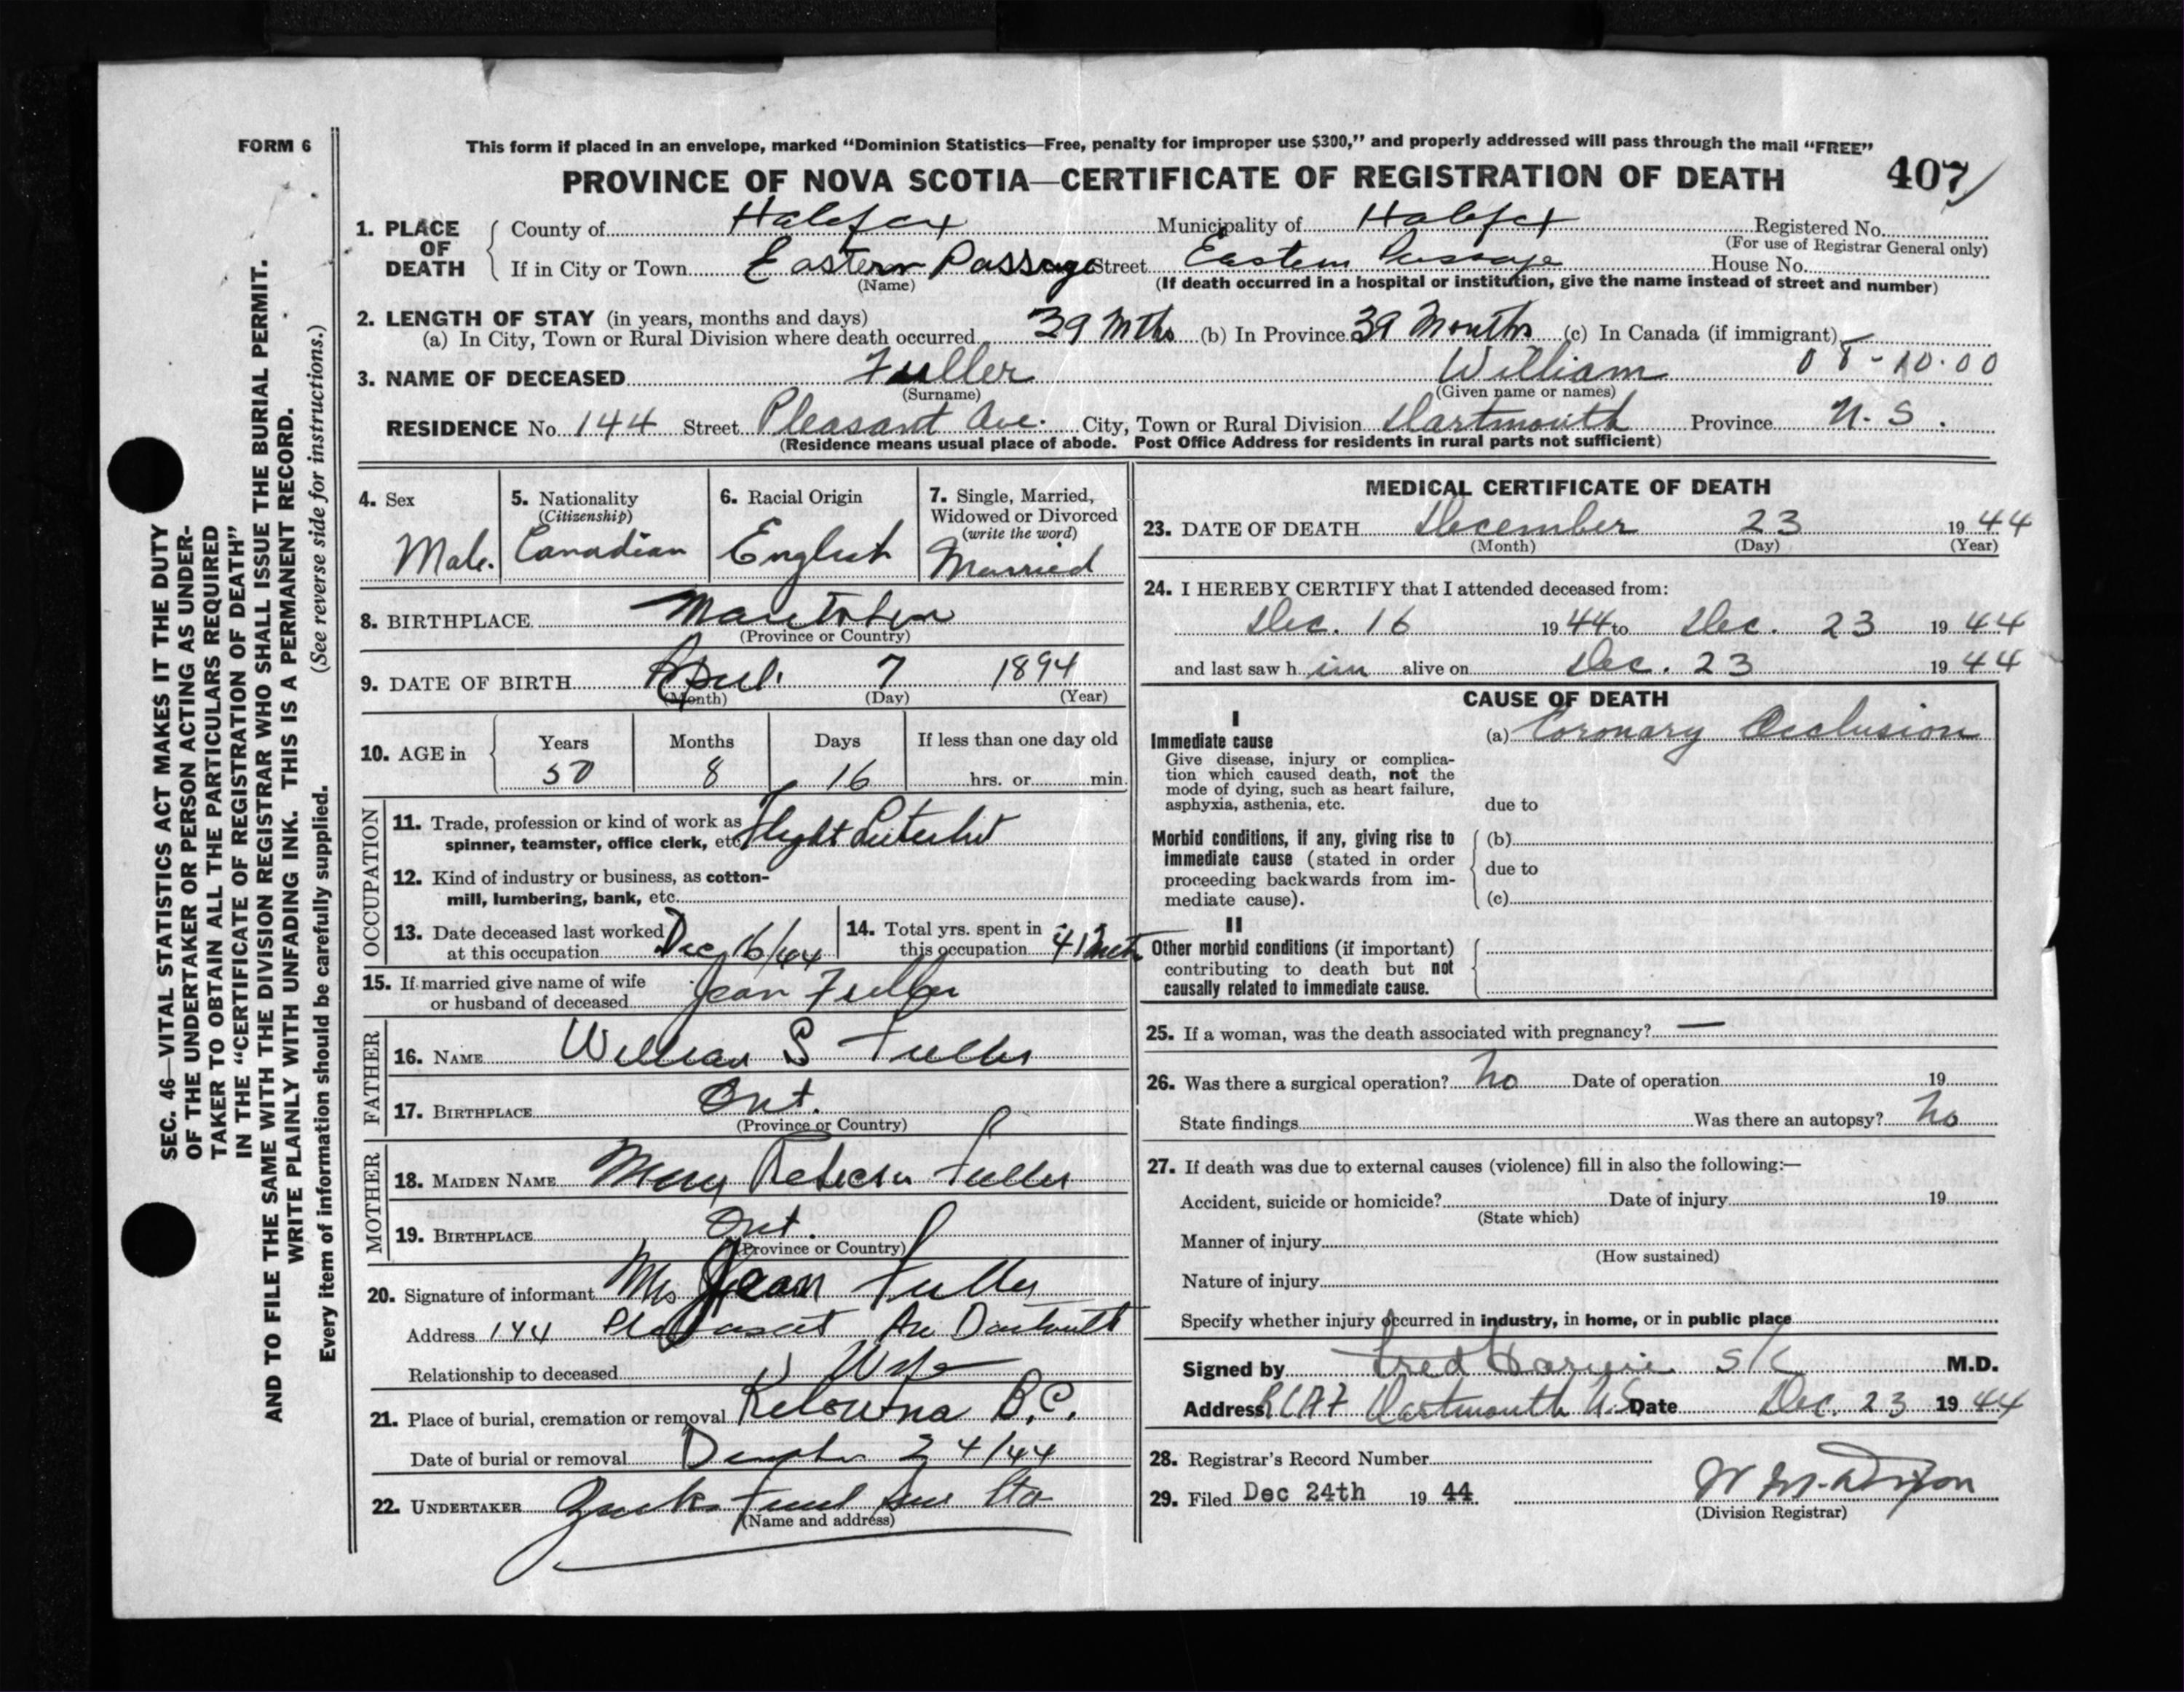 FORM 6
This form if placed in an envelope, marked “Dominion Statistics—Free, penalty for improper use $300,” and properly addressed will pass through the mail “FREE”
PROVINCE OF NOVA SCOTIA—CERTIFICATE OF REGISTRATION OF DEATH 407
1. PLACE OF DEATH
County of Halifax Municipality of Halifax Registered No.
(For use of Registrar General only)
If in City or Town Eastern Passage Street Eastern Passage House No.
(Name) (If death occurred in a hospital or institution, give the name instead of street and number)
2. LENGTH OF STAY (in years, months and days)
(a) In City, Town or Rural Division where death occurred 39 Mths (b) In Province 39 Months (c) In Canada (if immigrant)
3. NAME OF DECEASED Fuller William 08-10.00
(Surname) (Given name or names)
RESIDENCE No. 144 Street Pleasant Ave. City, Town or Rural Division Dartmouth Province N.S.
(Residence means usual place of abode. Post Office Address for residents in rural parts not sufficient)
4. Sex Male.
5. Nationality (Citizenship) Canadian
6. Racial Origin English
7. Single, Married, Widowed or Divorced (write the word) Married
8. BIRTHPLACE Manitoba
(Province or Country)
9. DATE OF BIRTH April 7 1894
(Month) (Day) (Year)
10. AGE in Years Months Days If less than one day old
50 8 16 hrs. or min.
OCCUPATION
11. Trade, profession or kind of work as spinner, teamster, office clerk, etc. Flight
12. Kind of industry or business, as cotton-
mill, lumbering, bank, etc.
13. Date deceased last worked at this occupation Dec 16/44
14. Total yrs. spent in this occupation 41
15. If married give name of wife
or husband of deceased Jean Fuller
FATHER
16. NAME William S Fuller
17. BIRTHPLACE Ont.
(Province or Country)
MOTHER
18. MAIDEN NAME Mary Rebecca Fuller
19. BIRTHPLACE Ont.
(Province or Country)
20. Signature of informant Mrs Jean Fuller
Address 144 Pleasant Ave Dartmouth
Relationship to deceased Wife
21. Place of burial, cremation or removal Kelowna B.C.
Date of burial or removal 24/44
22. UNDERTAKER
(Name and address)
MEDICAL CERTIFICATE OF DEATH
23. DATE OF DEATH December 23 1944
(Month) (Day) (Year)
24. I HEREBY CERTIFY that I attended deceased from:
Dec. 16 1944 to Dec. 23 1944
and last saw h im alive on Dec. 23 1944
CAUSE OF DEATH
I
Immediate cause (a) Coronary Occlusion
Give disease, injury or complica-
tion which caused death, not the
mode of dying, such as heart failure,
asphyxia, asthenia, etc. due to
Morbid conditions, if any, giving rise to (b)
immediate cause (stated in order due to
proceeding backwards from im-
mediate cause). (c)
II
Other morbid conditions (if important)
contributing to death but not
causally related to immediate cause.
25. If a woman, was the death associated with pregnancy? —
26. Was there a surgical operation? No Date of operation 19
State findings Was there an autopsy? No
27. If death was due to external causes (violence) fill in also the following:—
Accident, suicide or homicide? Date of injury 19
(State which)
Manner of injury
(How sustained)
Nature of injury
Specify whether injury occurred in industry, in home, or in public place
Signed by Fred M.D.
Address RCAF Dartmouth N.S. Date Dec. 23 1944
28. Registrar's Record Number
29. Filed Dec 24th 1944
(Division Registrar)
SEC. 46—VITAL STATISTICS ACT MAKES IT THE DUTY
OF THE UNDERTAKER OR PERSON ACTING AS UNDER-
TAKER TO OBTAIN ALL THE PARTICULARS REQUIRED
IN THE “CERTIFICATE OF REGISTRATION OF DEATH”
AND TO FILE THE SAME WITH THE DIVISION REGISTRAR WHO SHALL ISSUE THE BURIAL PERMIT.
WRITE PLAINLY WITH UNFADING INK. THIS IS A PERMANENT RECORD.
Every item of information should be carefully supplied. (See reverse side for instructions.)